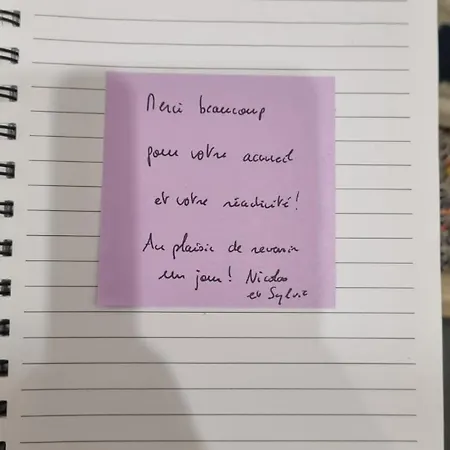 Merci beaucoup
pour votre accueil
et votre réactivité !
Au plaisir de revenir
un jour ! Nicolas
et Sylvie